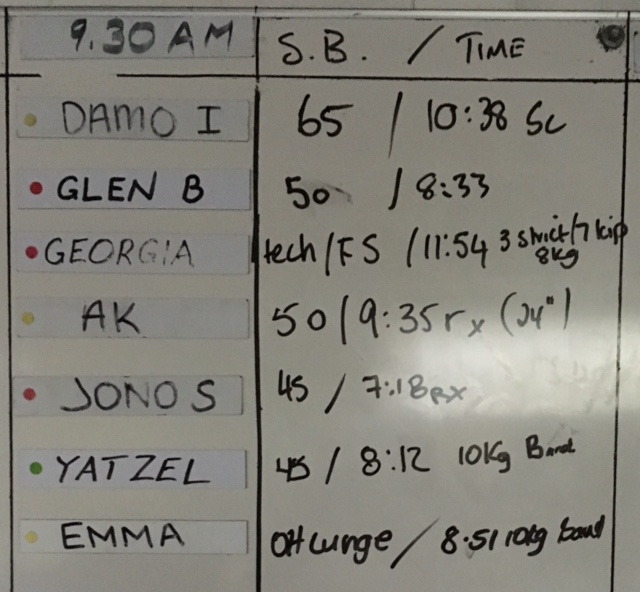 9.30 AM S.B. / TIME
DAMO I 65 / 10:38 Sc
GLEN B 50 / 8:33
GEORGIA tech/FS / 11:54 3 strict/7 kip
8kg
AK 50 / 9:35 rx (24")
JONO S 45 / 7:18 RX
YATZEL 45 / 8:12 10Kg Band
EMMA OH Lunge / 8.51 10kg band